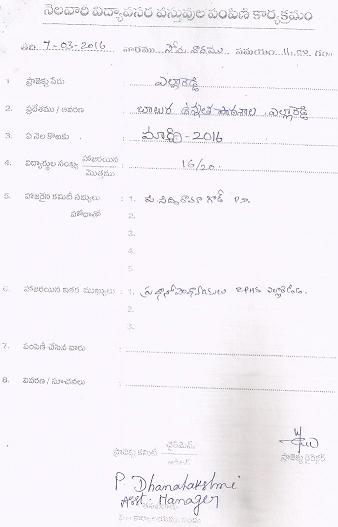 నెలవారి విద్యావసర వస్తువుల పంపిణి కార్యక్రమం
తేది 7-03-2016 వారము సోమవారము సమయం 11.00
1. ప్రాజెక్టు పేరు ఎల్లారెడ్డి
2. ప్రదేశము / ఆవరణ బాలుర ఉన్నత పాఠశాల, ఎల్లారెడ్డి
3. ఏ నెల కొఱకు మార్చి-2016
4. విద్యార్థుల సంఖ్య హాజరయిన 16/20
మొత్తము
5. హాజరైన కమిటీ సభ్యులు 1. గౌడ్
హోదాతో 2.
3.
4.
5.
6. హాజరయిన ఇతర ముఖ్యులు 1. ప్రధానోపాధ్యాయులు
2.
3.
7. పంపిణి చేసిన వారు
8. వివరణ / సూచనలు
ప్రాజెక్టు కమిటి చైర్‌మెన్
ప్రాజెక్టు డైరెక్టర్
P Dhanalakshmi
Asst. Manager